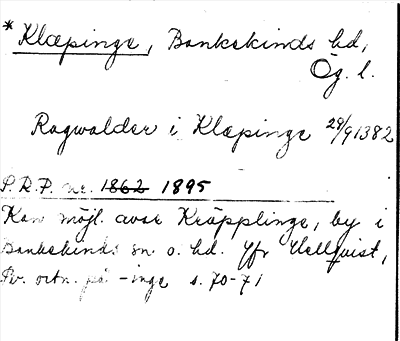 * Klæpinge, Bankekinds hd,
Ög. l.
Ragwalder i Klæpinge 29/9 1382
P.R.P. nr. 1862 1895
Kan möjl. avse Kräpplinge, by i
Bankekinds sn o. hd. Jfr Hellquist,
Sv. ortn. på -inge s. 70-71